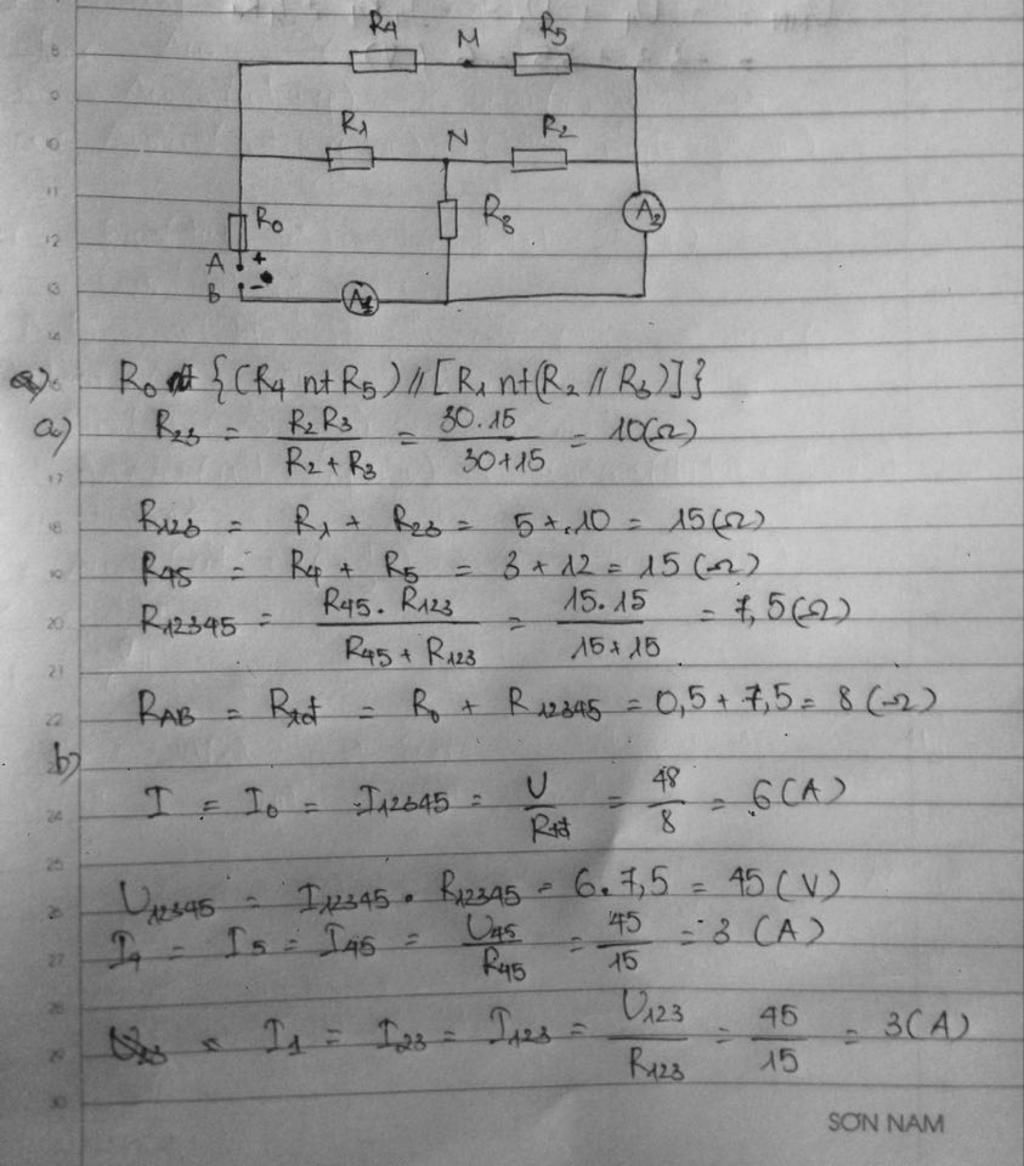 8
R4 M R5
9
R1 N R2
10
11
R0 R3 A2
12
A +
B -
13
A1
14
a) R0 nt {(R4 nt R5) // [R1 nt (R2 // R3)]}
16
a) R23 = R2 R3 / R2 + R3 = 30.15 / 30+15 = 10(Ω)
17
R123 = R1 + R23 = 5 + 10 = 15(Ω)
18
R45 = R4 + R5 = 3 + 12 = 15(Ω)
19
R12345 = R45 . R123 / R45 + R123 = 15.15 / 15+15 = 7,5(Ω)
20
21
RAB = Rtđ = R0 + R12345 = 0,5 + 7,5 = 8(Ω)
22
b)
I = I0 = I12345 = U / Rtđ = 48 / 8 = 6(A)
24
25
U12345 = I12345 . R12345 = 6.7,5 = 45(V)
26
I4 = I5 = I45 = U45 / R45 = 45 / 15 = 3(A)
27
28
= I1 = I23 = I123 = U123 / R123 = 45 / 15 = 3(A)
29
30
SƠN NAM